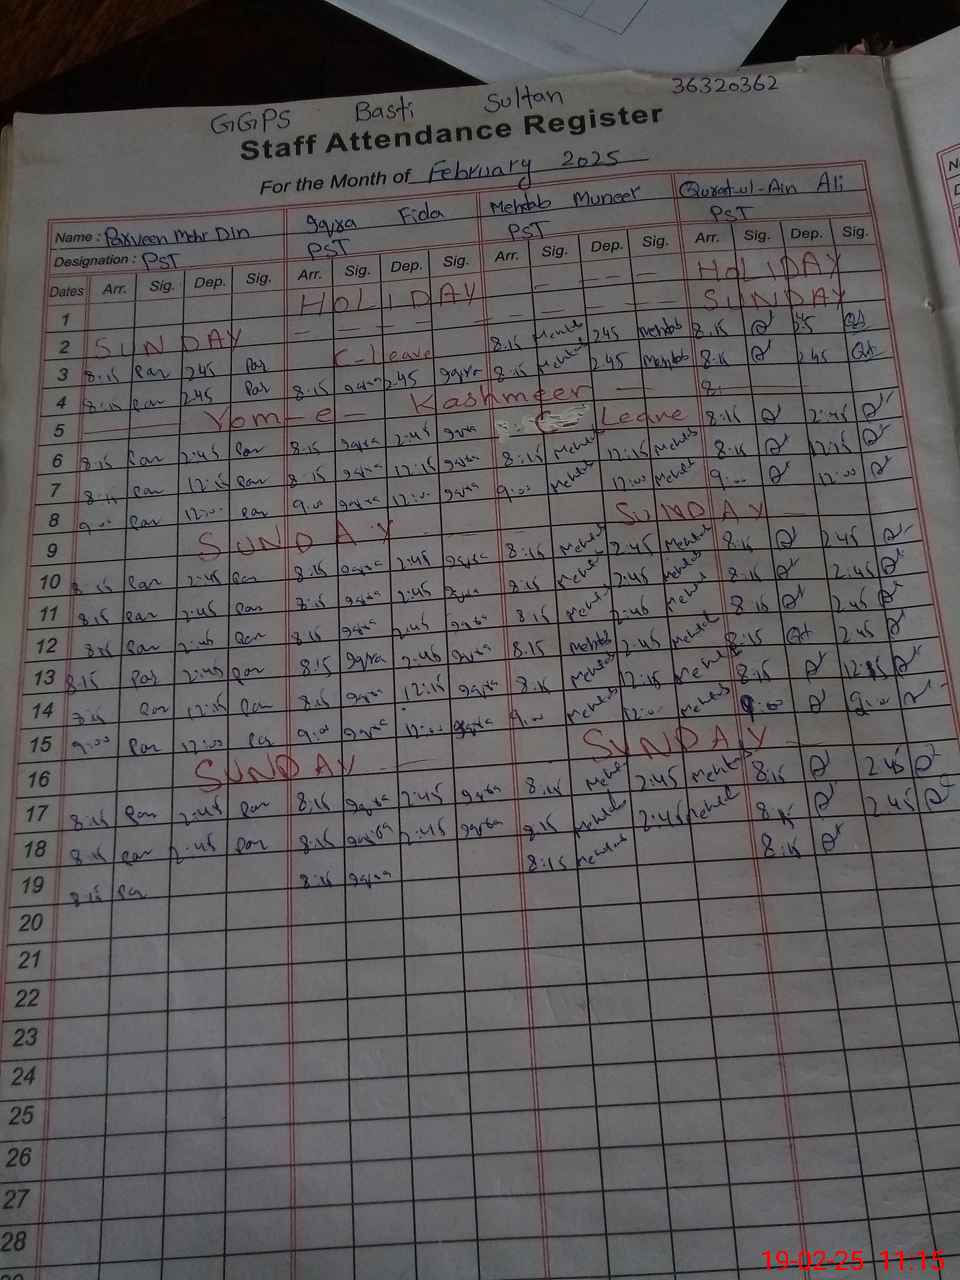 GGPS Basti Sultan 36320362
Staff Attendance Register
For the Month of February 2025
Name : Parveen Mehr Din Iqra Fida Mehtab Muneer Qurat-ul-Ain Ali
Designation : PST PST PST PST
Dates Arr. Sig. Dep. Sig. Arr. Sig. Dep. Sig. Arr. Sig. Dep. Sig. Arr. Sig. Dep. Sig.
1 HOLIDAY HOLIDAY
2 SUNDAY SUNDAY
3 8:15 Par 2:45 Par C-leave 8:15 Mehtab 2:45 Mehtab 8:15 2:45
4 8:15 Par 2:45 Par 8:15 Iqra 2:45 Iqra 8:15 Mehtab 2:45 Mehtab 8:15 2:45
5 Yom-e-Kashmeer 8:
6 8:15 Par 2:45 Par 8:15 Iqra 2:45 Iqra C Leave 8:15 2:45
7 8:15 Par 12:15 Par 8:15 Iqra 12:15 Iqra 8:15 Mehtab 12:15 Mehtab 8:15 12:15
8 9:00 Par 12:00 Par 9:00 Iqra 12:00 Iqra 9:00 Mehtab 12:00 Mehtab 9:00 12:00
9 SUNDAY SUNDAY
10 8:15 Par 2:45 Par 8:15 Iqra 2:45 Iqra 8:15 Mehtab 2:45 Mehtab 8:15 2:45
11 8:15 Par 2:45 Par 8:15 Iqra 2:45 Iqra 8:15 Mehtab 2:45 Mehtab 8:15 2:45
12 8:15 Par 2:45 Par 8:15 Iqra 2:45 Iqra 8:15 Mehtab 2:45 Mehtab 8:15 2:45
13 8:15 Par 2:45 Par 8:15 Iqra 2:45 Iqra 8:15 Mehtab 2:45 Mehtab 8:15 2:45
14 8:15 Par 12:15 Par 8:15 Iqra 12:15 Iqra 8:15 Mehtab 12:15 Mehtab 8:15 12:15
15 9:00 Par 12:00 Par 9:00 Iqra 12:00 Iqra 9:00 Mehtab 12:00 Mehtab 9:00 9:00
16 SUNDAY SUNDAY
17 8:15 Par 2:45 Par 8:15 Iqra 2:45 Iqra 8:15 Mehtab 2:45 Mehtab 8:15 2:45
18 8:15 Par 2:45 Par 8:15 Iqra 2:45 Iqra 8:15 Mehtab 2:45 Mehtab 8:15 2:45
19 8:15 Par 8:15 Iqra 8:15 Mehtab 8:15
20
21
22
23
24
25
26
27
28
19-02-25 11:15